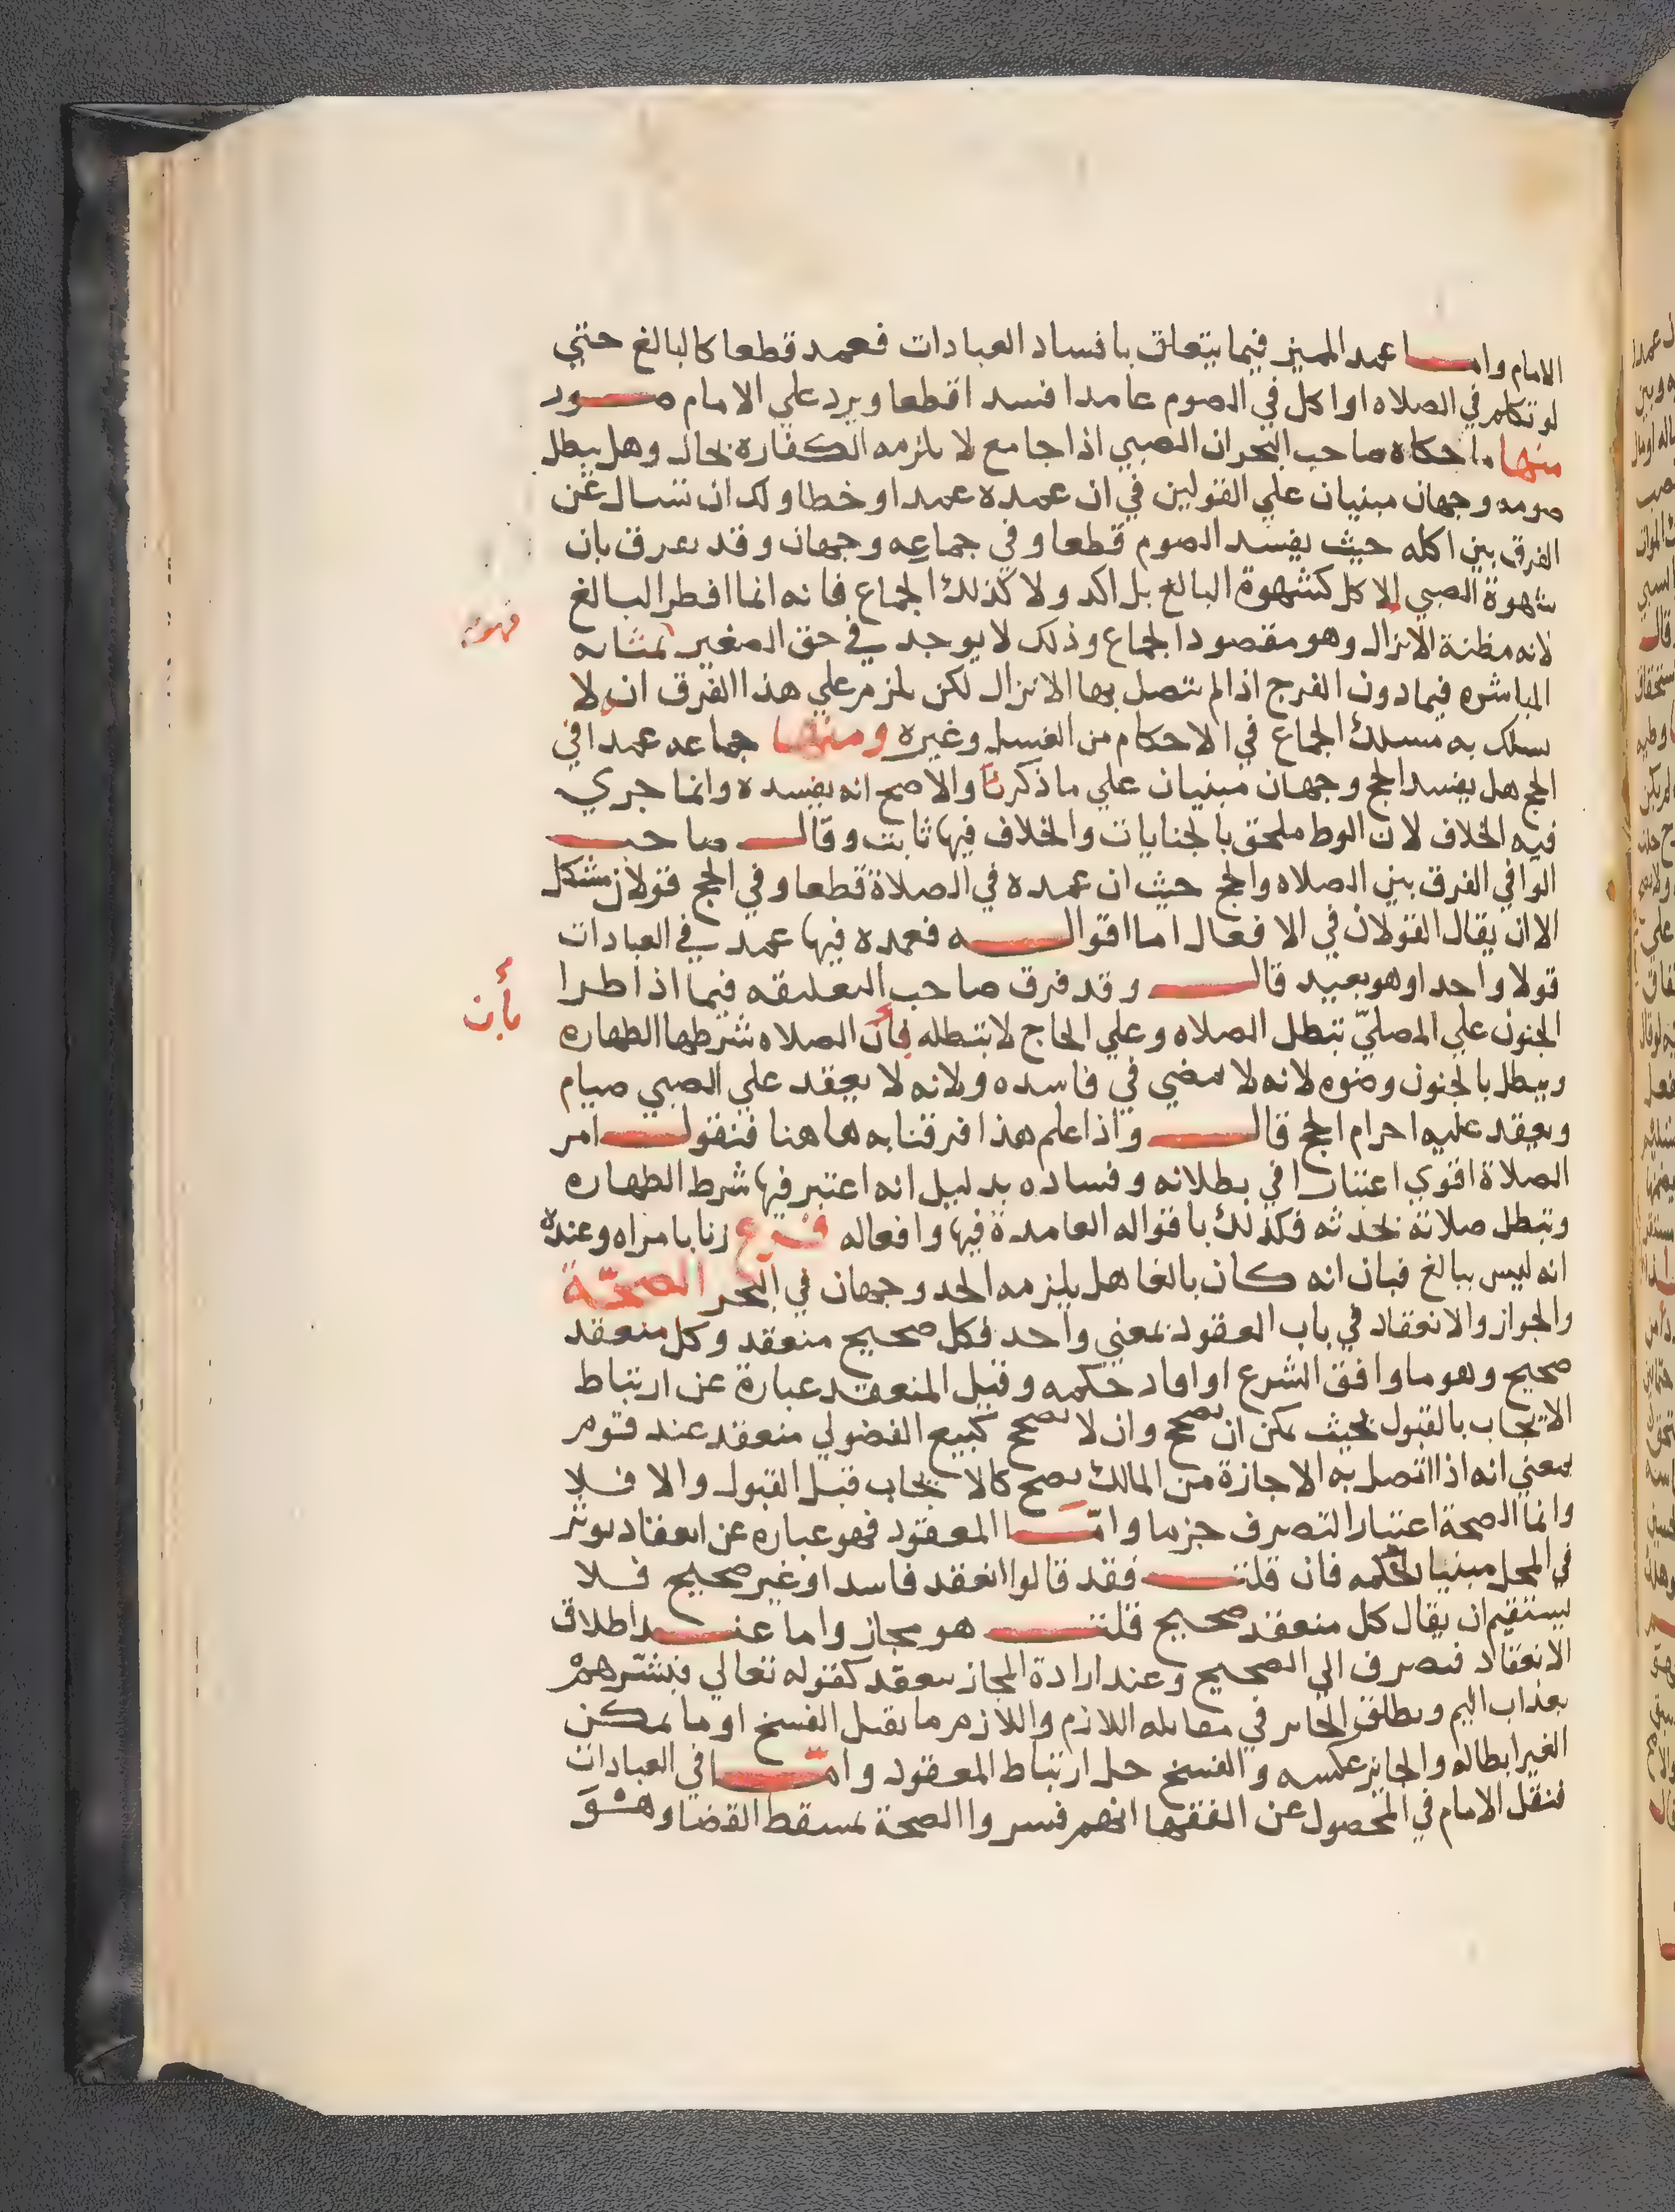 الامام واما عمد المميز فيما يتعلق بافساد العبادات فعمد قطعا كالبالغ حتي
لو تكلم في الصلاه او اكل في الصوم عامدا فسد اقطعا ويرد علي الامام صور
منها ما حكاه صاحب البحر ان الصبي اذا جامع لا يلزمه الكفاره بحال وهل يبطل
صومه وجهان مبنيان علي القولين في ان عمده عمد او خطا ولك ان تسال عن
الفرق بين اكله حيث يفسد الصوم قطعا وفي جماعه وجهان وقد يفرق بان
شهوة الصبي للاكل كشهوة البالغ بل اكد ولا كذلك الجماع فانه انما افطر البالغ
لانه مظنة الانزال وهو مقصود الجماع وذلك لا يوجد في حق الصغير بمثابه
فهو
المباشره فيما دون الفرج اذا لم تتصل بها الانزال لكن يلزم علي هذا الفرق ان لا
يسلك به مسلك الجماع في الاحكام من الغسل وغيره ومنها جماعه عمدا في
الحج هل يفسد الحج وجهان مبنيان علي ما ذكرنا والاصح انه يفسده وانما جري
فيه الخلاف لان الوط ملحق بالجنايات والخلاف فيها ثابت وقال صاحب
الوافي الفرق بين الصلاه والحج حيث ان عمده في الصلاة قطعا وفي الحج قولان مشكل
الا ان يقال القولان في الافعال اما اقواله فعمده فيها عمد في العبادات
قولا واحدا وهو بعيد قال وقد فرق صاحب التعليقه فيما اذا طرا
الجنون علي المصليّ تبطل الصلاه وعلي الحاج لا تبطله بأن الصلاه شرطها الطهاره
بأن
ويبطل بالجنون وضوه لانه لا يمضي في فاسده ولانه لا يعقد علي الصبي صيام
ويعقد عليه احرام الحج قال واذا علم هذا فرقنا به هاهنا فنقول امر
الصلاة اقوي اعتبارا في بطلانه وفساده بدليل انه اعتبر فيها شرط الطهاره
وتبطل صلاته بحدثه فكذلك باقواله العامدة فيها وافعاله فرع زنا بامراه وعنده
انه ليس ببالغ فبان انه كان بالغا هل يلزمه الحد وجهان في البحر الصحّة
والجواز والانعقاد في باب العقود بمعني واحد فكل صحيح منعقد وكل منعقد
صحيح وهو ما وافق الشرع او افاد حكمه وقيل المنعقد عبارة عن ارتباط
الايجاب بالقبول بحيث يمكن ان يصح وان لا يصح كبيع الفضولي منعقد عند قوم
بمعني انه اذا اتصل به الاجازة من المالك يصح كالايجاب قبل القبول والا فلا
وانما الصحة اعتبار التصرف جزما وامّا المعقود فهو عباره عن انعقاد يوثر
في المحل مبنيا لحكمه فان قلت فقد قالوا انعقد فاسدا وغير صحيح فلا
يستقيم ان يقال كل منعقد صحيح قلت هو مجاز واما عند اطلاق
الانعقاد فيصرف الي الصحيح وعند ارادة المجاز يعقد كقوله تعالي فبشّرهمْ
بعذاب اليم ويطلق الجايز في مقابله اللازم واللازم ما يقبل الفسخ او ما يمكن
الغير ابطاله والجايز عكسه والفسخ حل ارتباط المعقود وامّا في العبادات
فنقل الامام في المحصول عن الفقها انهم فسروا الصحة بمسقط القضا وهو